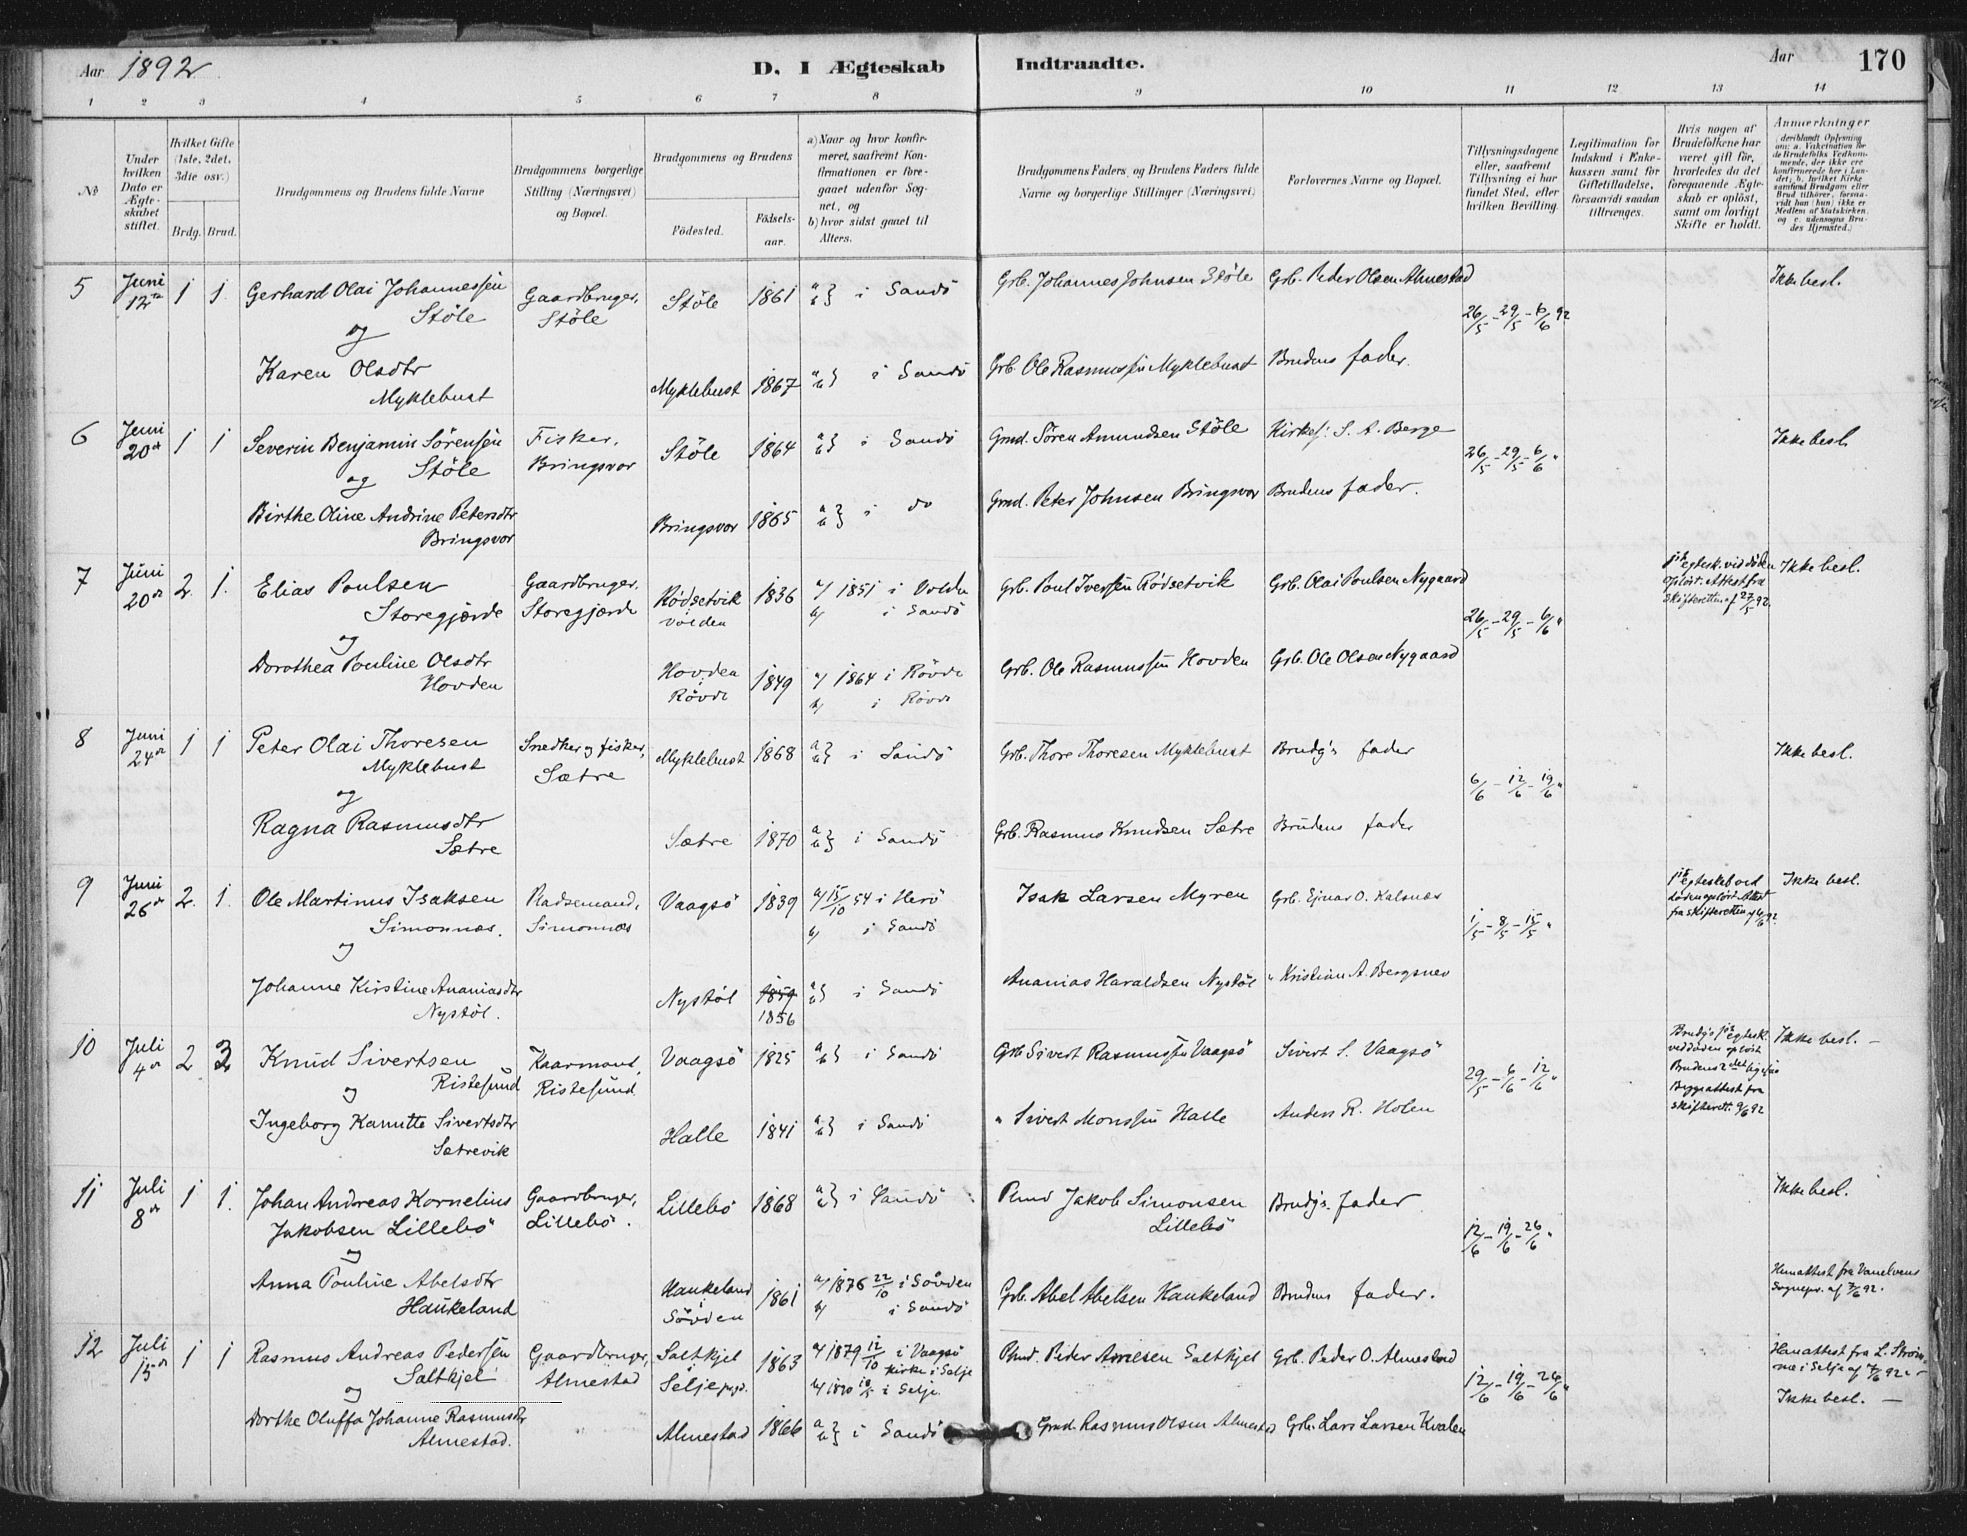 Aar 1892
D. I Ægteskab Indtraadte.
Aar 170
1 2 3 4 5 6 7 8 9 10 11 12 13 14
No
Under hvilken Dato er Ægteskabet stiftet.
Hvilket Gifte (1ste, 2det, 3die osv.)
Brdg. Brud.
Brudgommens og Brudens fulde Navne
Brudgommens borgerlige Stilling (Næringsvei) og Bopæl.
Brudgommens og Brudens
Födested. Födselsaar.
a) Naar og hvor konfirmeret, saafremt Konfirmationen er foregaaet udenfor Sognet, og
b) hvor sidst gaaet til Alters.
Brudgommens Faders, og Brudens Faders fulde Navne og borgerlige Stillinger (Næringsvei)
Forlovernes Navne og Bopæl.
Tillysningsdagene eller, saafremt Tillysning ei har fundet Sted, efter hvilken Bevilling
Legitimation for Indskud i Enkekassen samt for Giftetilladelse, forsaavidt saadan tiltrænges.
Hvis nogen af Brudefolkene har været gift før, hvorledes da det foregaaende Ægteskab er oplöst, samt om lovligt Skifte er holdt.
Anmærkninger
(deriblandt Oplysning om: a. Vakcination for de Brudefolks Vedkommende, der ikke ere konfirmerede her i Landet; b. hvilket Kirkesamfund Brudgom eller Brud tilhörer, forsaavidt han (hun) ikke er Medlem af Statskirken, og c. udensogns Brudes Hjemsted.)
5 Juni 12te 1 1. Gerhard Olai Johannessen Støle Gaardbruger, Støle Støle 1861 a b} i Sandö Grb. Johannes Johnsen Støle Grb. Peder Olsen Almestad 26/5 - 29/5 - 6/6 92 Ikke besl.
og
Karen Olsdtr Myklebust Myklebust 1867 a b} i Sandö Grb. Ole Rasmussen Myklebust Brudens fader.
6 Juni 20de 1 1 Severin Benjamin Sörensen Støle Fisker, Bringsvor Støle 1864 a b} i Sandö Gmd. Sören Amundsen Støle Kirkes: S. A. Berge 26/5 - 29/5 - 6/6 " Ikke besl.
og
Birthe Oline Andrine Petersdtr Bringsvor Bringsvor 1865 a b} i do Gmd. Peter Johnsen Bringsvor Brudens fader.
7 Juni 20de 2 1. Elias Poulsen Storegjærde Gaardbruger, Storegjærde Rødsetvik i Volden 1836 a/ 1851 i Volden b/ i Sandö Grb. Poul Iversen Rødsetvik Grb. Olai Poulsen Nygaard 26/5 - 29/5 - 6/6 " 1ste egtesk. ved döden oplöst. Attest fra Skifteretten af 27/5 92. Ikke besl.
og
Dorothea Pouline Olsdtr Hovden Hovden i Røvde 1849 a/ 1864 i Røvde b/ i Røvde Grb. Ole Rasmussen Hovden Grb. Ole Olsen Nygaard
8 Juni 24de 1 1 Peter Olai Thoresen Myklebust Snedker og fisker, Sætre Myklebust 1868 a b} i Sandö Grb. Thore Thoresen Myklebust Brudg's fader 6/6 - 12/6 - 19/6 " Ikke besl.
og
Ragna Rasmusdtr Sætre Sætre 1870 a b} i Sandö Grb. Rasmus Knudsen Sætre Brudens fader
9 Juni 26de 2. 1. Ole Martinus Isaksen Simonnæs. Pladsemand, Simonnæs Vaagsö 1839 a/ 15/10 54 i Herö b/ i Sandö Isak Larsen Myren Grb. Ejnar O. Kalsnæs 1/5 - 8/5 - 15/5 " 1ste egteskab ved döden oplöst. Attest fra skifteretten af 4/6 92. Ikke besl.
og
Johanne Kirstine Ananiasdtr Nystøl. Nystøl 1859 1856 a b} i Sandö Ananias Haraldsen Nystøl " Kristian A. Bergsnev
10 Juli 4de 2 3 Knud Sivertsen Ristesund Kaarmand, Ristesund Vaagsö 1825 a b} i Sandö Grb Sivert Rasmussen Vaagsö Sivert S. Vaagsö 29/5 - 6/6 - 12/6 " Brudg's 1ste egtesk. ved döden oplöst Brudens 2det ligesaa Begge attest fra skifterett. 9/6 92 Ikke besl. -
og
Ingeborg Kanutte Sivertsdtr Sætrevik Halle 1841 a b} i Sandö " Sivert Monssen Halle Anders R. Holen
11 Juli 8de 1 1. Johan Andreas Kornelius Jakobsen Lillebö Gaardbruger, Lillebö. Lillebö 1868 a b} i Sandö Pmd Jakob Simonsen Lillebö Brudg's. fader 12/6 - 19/6 - 26/6 " Ikke besl.
og
Anna Pouline Abelsdtr Haukeland Haukeland i Sövden 1861 a/ 1876 22/10 i Sövden b/ i Sandö Grb. Abel Abelsen Haukeland Brudens fader. Hunattest fra Vanelvens Sognepr. af 7/6 92.
12 Juli 15de 1 1 Rasmus Andreas Pedersen Saltkjel Gaardbruger, Almestad Saltkjel Selje pgd. 1863 a/ 1879 12/10 i Vaagsö kirke i Selje b/ 1890 18/5 i Selje. Pmd. Peder Saltkjel Grb. Peder O. Almestad 12/6 - 19/6 - 26/6 " Hanattest fra L. i Selje af 7/6 92. -
Ikke besl. -
og
Dorthe Oluffa Johanne Rasmusdtr Almestad. Almestad 1866 a b} i Sandö Gmd. Rasmus Olsen Almestad Grb. Lars Larsen Kvalen